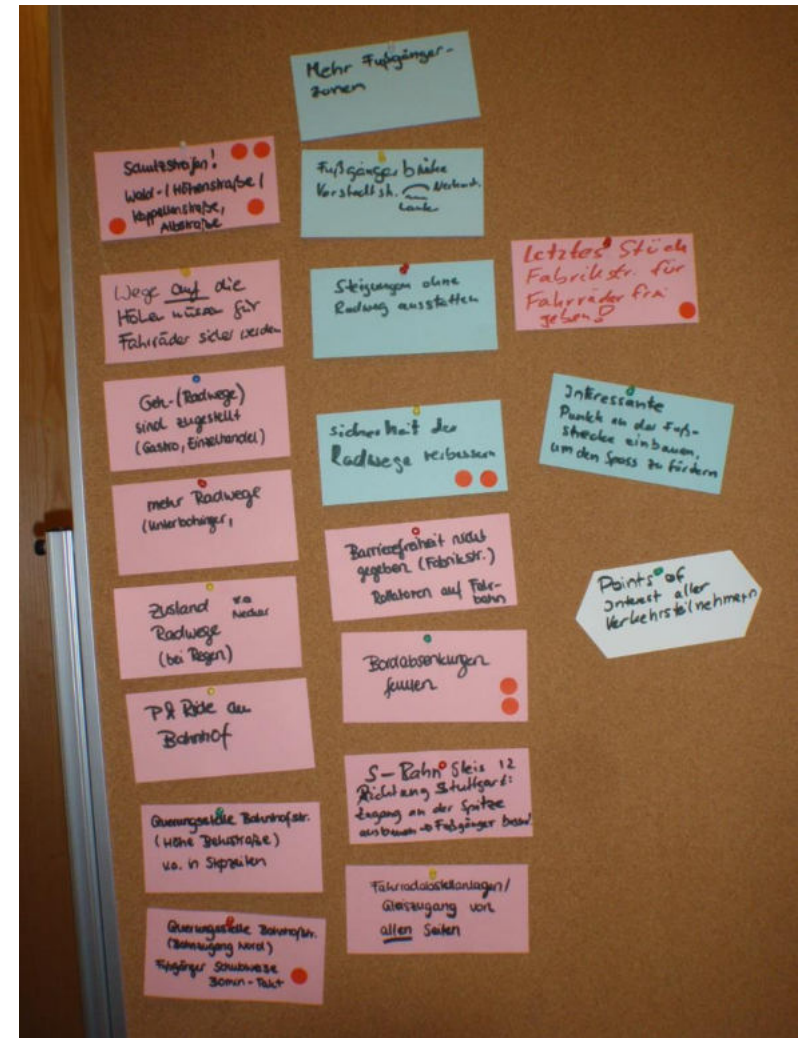 Mehr Fußgänger-
zonen
Schutzstreifen!
Wald-/Höhenstraße/
Kappellenstraße,
Albstraße
Wege auf die
Höhen müssen für
Fahrräder sicher werden
Geh-(Radwege)
sind zugestellt
(Gastro, Einzelhandel)
mehr Radwege
(Unterboihinger,
Zustand v.a.
Radwege Neckar
(bei Regen)
P&Ride am
Bahnhof
Querungsstelle Bahnhofstr.
(Höhe
v.a. in Stoßzeiten
Querungsstelle Bahnhofstr.
(Bahnzugang Nord)
Fußgänger Schubweise
30min-Takt
Fußgängerbrücke
Vorstadtstr.
Steigungen ohne
Radweg ausstatten
Sicherheit der
Radwege verbessern
Barrierefreiheit nicht
gegeben (Fabrikstr.)
Rollatoren auf Fahr-
bahn
Bordabsenkungen
fehlen
S-Bahn Gleis 12
Richtung Stuttgart:
Zugang an der Spitze
ausbauen → Fußgänger
Fahrradabstellanlagen/
Gleiszugang von
allen Seiten
Letztes Stück
Fabrikstr. für
Fahrräder frei
geben!
Interessante
Punkte an der Fuß-
strecke einbauen,
um den Spass zu fördern
Points of
Interest aller
Verkehrsteilnehmern